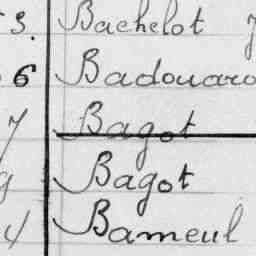 3. Bachelot
6 Badouard
7 Bagot
9 Bagot
4 Bameul